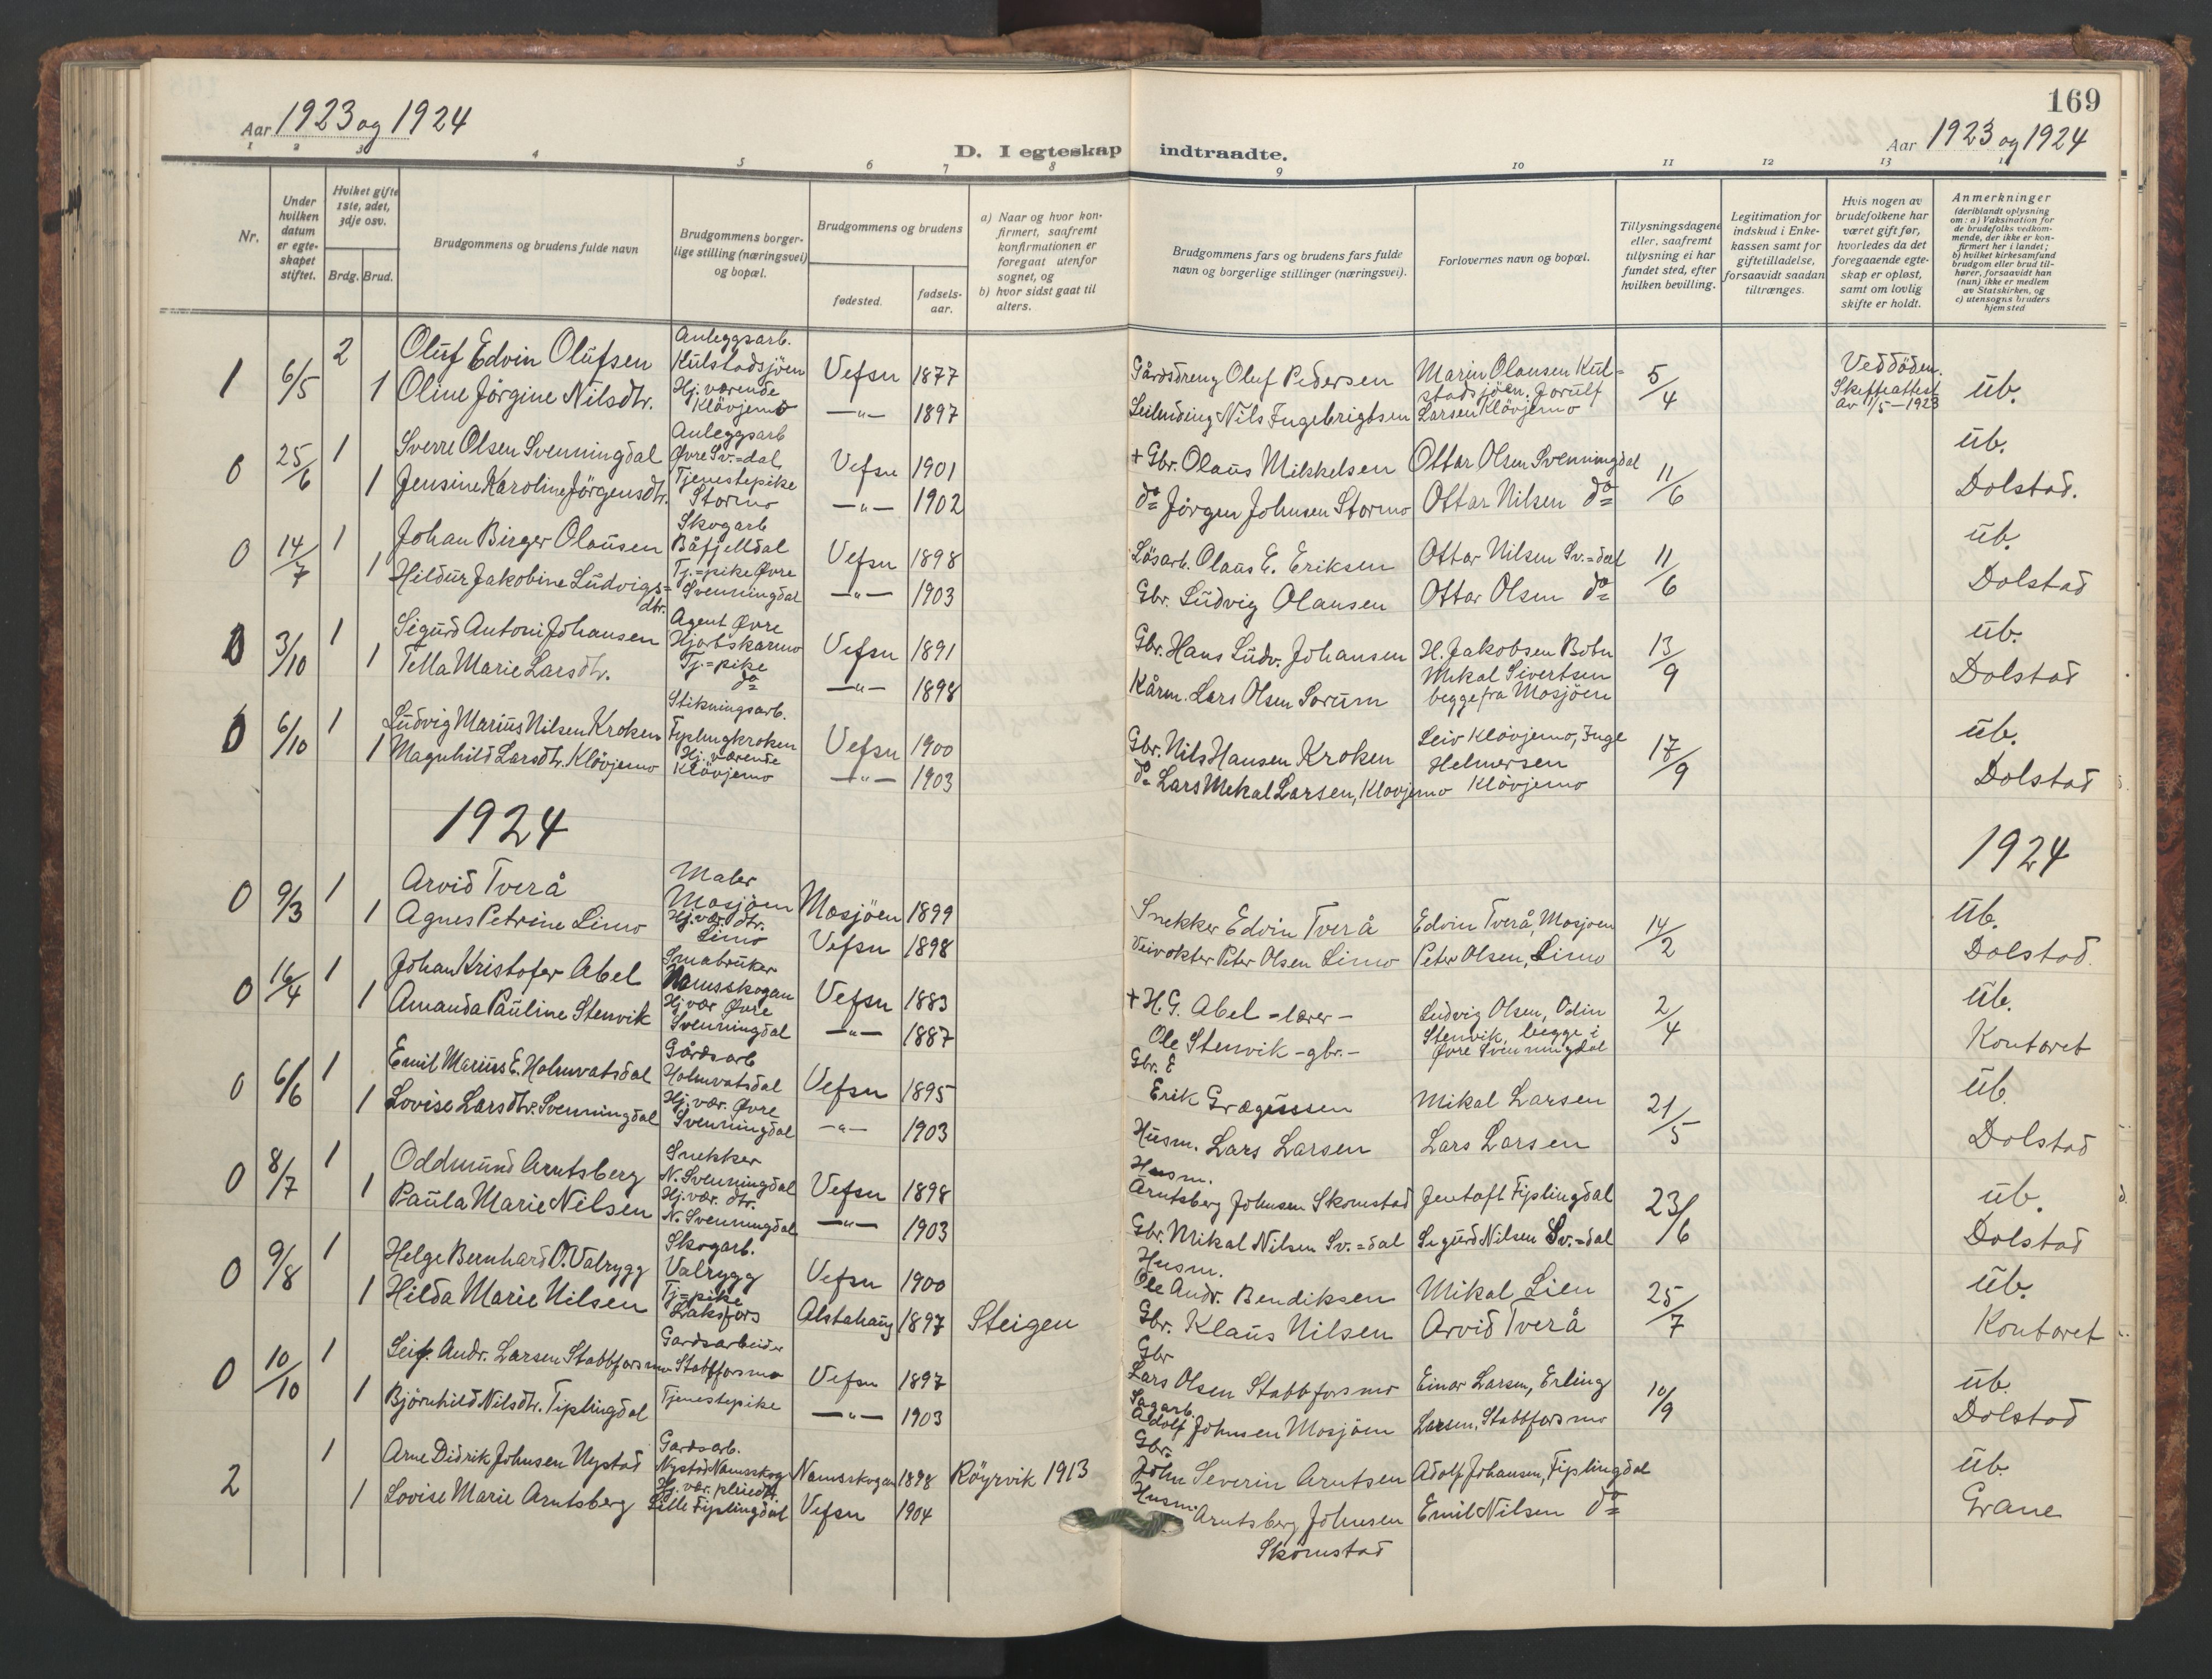 169
Aar 1923 og 1924
Aar 1923 og 1924
D. I egteskap indtraadte.
1 2 3 4 5 6 7 8 9 10 11 12 13 14
Nr.
Under hvilken datum er egteskapet stiftet.
Hvilket gifte 1ste, 2det, 3dje osv.
Brdg. Brud.
Brudgommens og brudens fulde navn
Brudgommens borgerlige stilling (næringsvei) og bopæl.
Brudgommens og brudens
fødested.
fødselsaar.
a) Naar og hvor konfirmert, saafremt konfirmationen er foregaat utenfor sognet, og
b) hvor sidst gaat til alters.
Brudgommens fars og brudens fars fulde navn og borgerlige stillinger (næringsvei).
Forlovernes navn og bopæl.
Tillysningsdagene eller, saafremt tillysning ei har fundet sted, efter hvilken bevilling.
Legitimation for indskud i Enkekassen samt for giftetilladelse, forsaavidt saadan tiltrænges.
Hvis nogen av brudefolkene har været gift før, hvorledes da det foregaaende egteskap er opløst, samt om lovlig skifte er holdt.
Anmerkninger
(deriblandt oplysning om: a) Vaksination for de brudefolks vedkommende, der ikke er konfirmert her i landet; b) hvilket kirkesamfund brudgom eller brud tilhører, forsaavidt han (hun) ikke er medlem av Statskirken, og c) utensogns bruders hjemsted
1 6/5 2 Oluf Edvin Olufsen Anleggsarb. Kulstadsjöen Vefsn 1877 Gårdsdreng Oluf Pedersen Marin Olausen Kulstadsjöen. Jorulf 5/4 Ved döden. Skifteattest av 1/5-1923 üb.
1 Oline Jörgine Nilsdtr. Hj. værende Klövjemo —"— 1897 Leilending Nils Ingebrigtsen Larsen Klövjemo
0 25/6 1 Sverre Olsen Svenningdal Anleggsarb Øvre Sv.=dal Vefsn 1901 + Gbr. Olaus Mikkelsen Ottar Olsen Svenningdal 11/6 üb.
1 Jensine Karoline Jörgensdtr. Tjenestepike Stormo —"— 1902 do Jörgen Johnsen Stormo Ottar Nilsen do Dolstad.
0 14/7 1 Johan Birger Olausen Skogarb Båfjelldal Vefsn 1898 Lösarb. Olaus E. Eriksen Ottar Nilsen Sv.=dal 11/6 üb.
1 Hildur Jakobine Ludvigs=dtr. Tj.=pike Øvre Svenningdal —"— 1903 Gbr. Ludvig Olausen Ottar Olsen do Dolstad
0 3/10 1 Sigurd Antoni Johansen Agent Øvre Hjortskarmo Vefsn 1891 Gbr. Hans Ludv. Johansen H. Jakobsen Botn 13/9 üb.
1 Tella Marie Larsdtr. Tj.=pike do —"— 1898 Kårm. Lars Olsen Sorum Mikal Sivertsen begge fra Mosjöen Dolstad
0 6/10 1 Ludvig Marius Nilsen Kroken Stikningsarb. Fiplingkroken Vefsn 1900 Gbr. Nils Hansen Kroken Leiv Klövjemo, Inge 17/9 üb.
1 Magnhild Larsdtr. Klövjemo Hj. værende Klövjemo —"— 1903 do Lars Mekal Larsen, Klövjemo Helmersen Klövjemo Dolstad
1924
1924
0 9/3 1 Arvid Tverå Maler Mosjöen Mosjöen 1899 Snekker Edvin Tverå Edvin Tverå, Mosjöen 14/2 üb.
1 Agnes Petrine Limo Hj. vær. dtr. Limo Vefsn 1898 Veivokter Peter Olsen Limo Peter Olsen, Limo Dolstad.
0 16/4 1 Johan Kristofer Abel Småbruker Namsskogan Vefsn 1883 + H.G. Abel - lærer - Ludvig Olsen, Odin 2/4 üb.
1 Amanda Pauline Stenvik Hj. vær Øvre Svenningdal —"— 1887 Ole Stenvik - gbr. - Stenvik, begge i Øvre Svenningdal Kontoret
0 6/6 1 Emil Marius E. Holmvatsdal Gårdsarb Holmvatsdal Vefsn 1895 Gbr. E Erik Grægussen Mikal Larsen 21/5 üb.
1 Lovise Larsdtr. Svenningdal Hj. vær. Øvre Svenningdal —"— 1903 Husm. Lars Larsen Lars Larsen Dolstad
0 8/7 1 Oddmund Arntsberg Snekker N. Svenningdal Vefsn 1898 Husm. Arntsberg Johnsen Skomstad Jentoft Fiplingdal 23/6 üb.
1 Paula Marie Nilsen Hj. vær. dtr. N. Svenningdal —"— 1903 Gbr. Mikal Nilsen Sv.=dal Sigurd Nilsen Sv.=dal Dolstad
0 9/8 1 Helge Bernhard O. Valrygg Skogarb. Valrygg Vefsn 1900 Husm. Ole Andr. Bendiksen Mikal Lien 25/7 üb.
1 Hilda Marie Nilsen Tj=pike Laksfors Alstahaug 1897 Steigen Gbr. Klaus Nilsen Arvid Tverå Kontoret
0 10/10 1 Leif. Andr. Larsen Stabbforsmo Gardsarbeider Stabbforsmo Vefsn 1897 Gbr Lars Olsen Stabbforsmo Einar Larsen, Erling 10/9 üb.
1 Björnhild Nilsdtr. Fiplingdal Tjenestepike —"— 1903 Sagarb. Adolf Johnsen Mosjöen Larsen, Stabbforsmo Dolstad
2 1 Arne Didrik Johnsen Nystad Gardsarb. Nystad Namsskog Namsskogan 1898 Röyrvik 1913 Gbr. John Severin Arntsen Adolf Johansen, Fiplingdal üb.
1 Lovise Marie Arntsberg Hj. vær. Lille Fiplingdal Vefsn 1904 Husm. Arntsberg Johnsen Skomstad Emil Nilsen do Grane